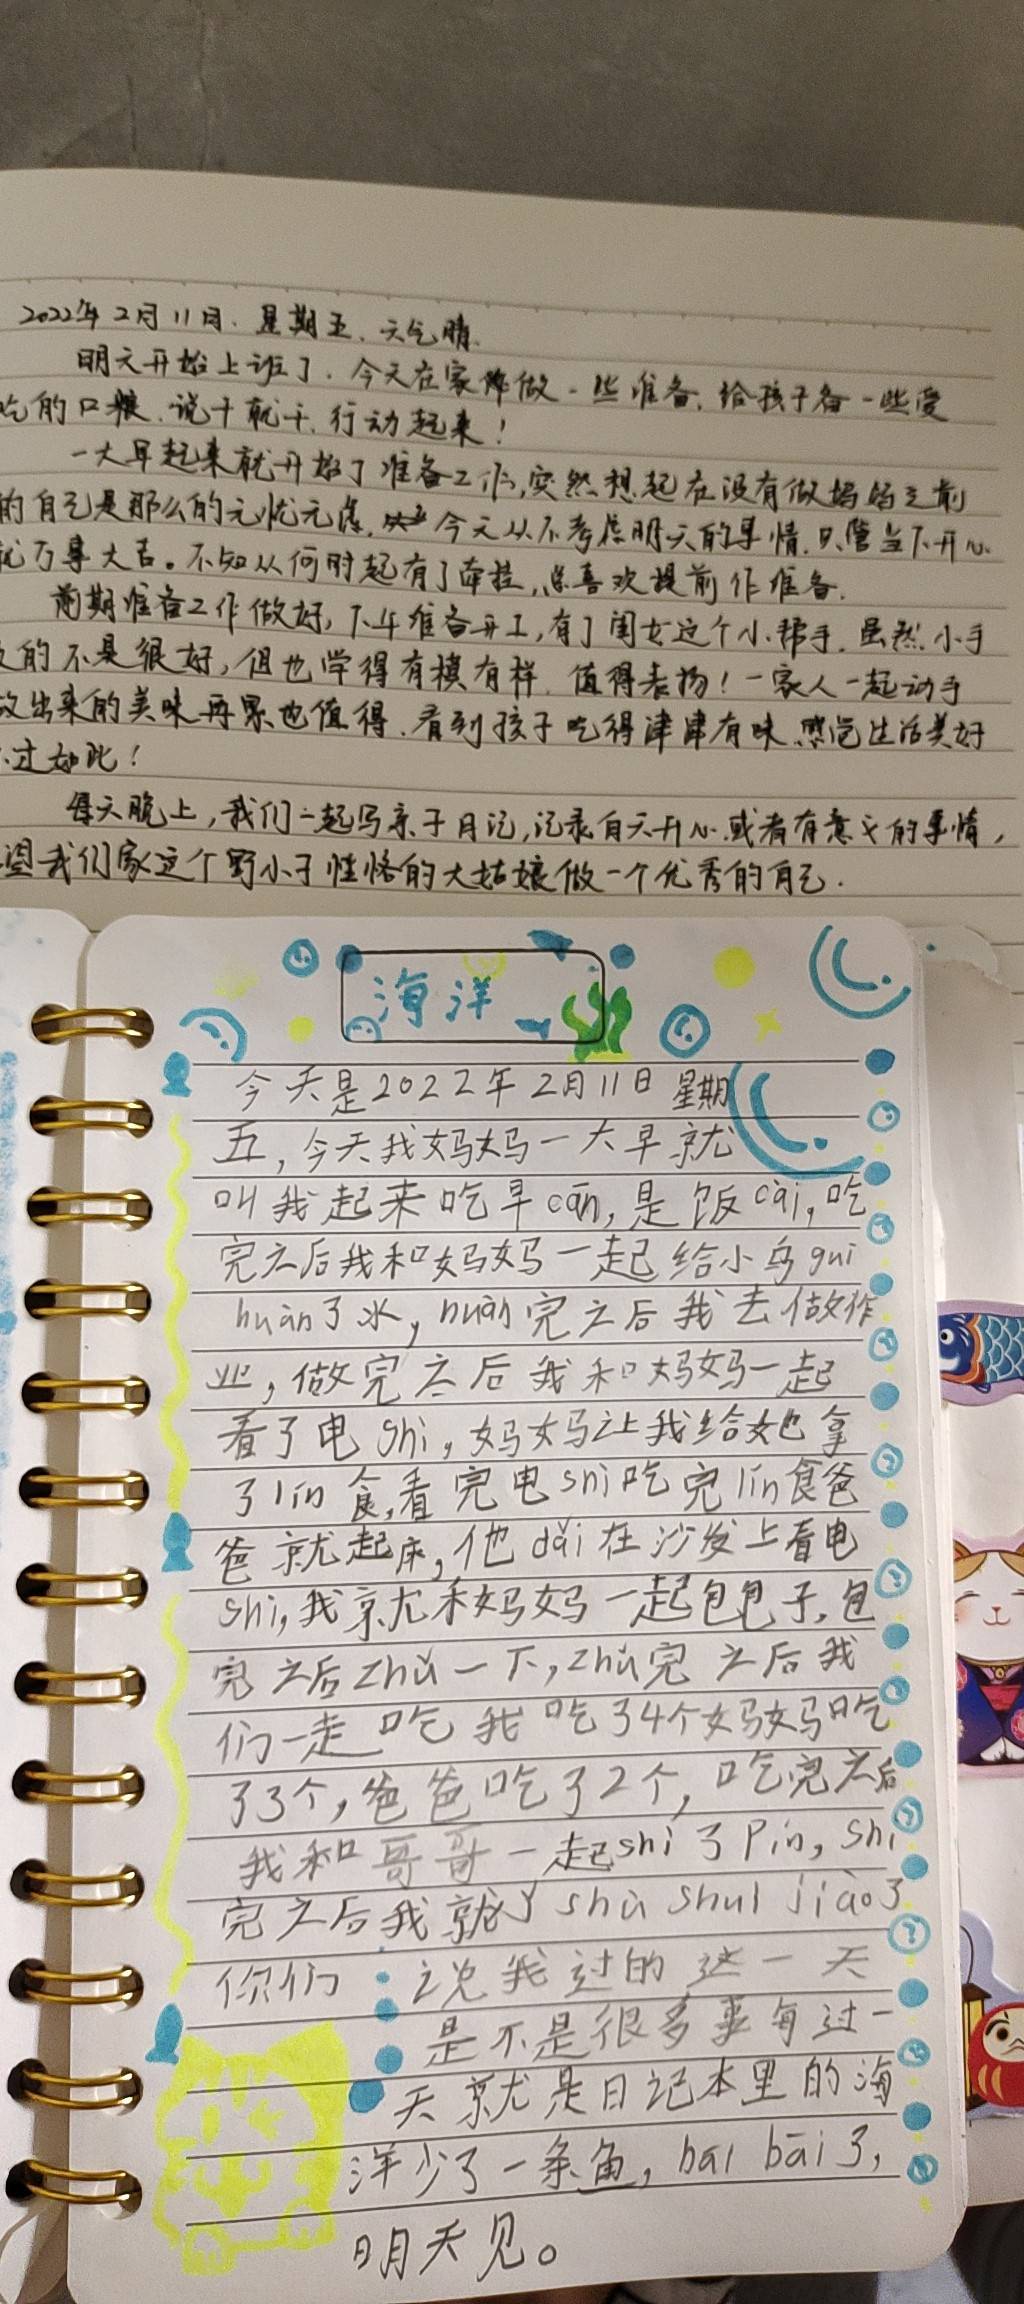 2022年2月11日. 星期五. 天气晴.
明天开始上班了. 今天在家做一些准备, 给孩子备一些爱
吃的口粮. 说干就干, 行动起来!
一大早起来就开始了准备工作, 突然想起在没有做妈妈之前
的自己是那么的无忧无虑, 今天从不考虑明天的事情. 只管当下开心
就万事大吉。不知从何时起有了牵挂, 总喜欢提前作准备.
前期准备工作做好, 下午准备开工, 有了闺女这个小帮手. 虽然小手
的不是很好, 但也学得有模有样. 值得表扬! 一家人一起动手
做出来的美味再累也值得. 看到孩子吃得津津有味 感觉生活美好
不过如此!
每天晚上, 我们一起写亲子日记, 记录每天开心或者有意义的事情,
望我们家这个野小子性格的大姑娘做一个优秀的自己.
海洋
今天是2022年2月11日 星期
五, 今天我妈妈一大早就
叫我起来吃早cān, 是饭cài, 吃
完之后我和妈妈一起给小乌guī
huàn了水, huàn完之后我去做作
业, 做完之后我和妈妈一起
看了电shì, 妈妈让我给她拿
了lín食, 看完电shì吃完lín食爸
爸就起床, 他dāi在沙发上看电
shì, 我就和妈妈一起包包子, 包
完之后zhǔ一下, zhǔ完之后我
们一起吃 我吃了4个妈妈吃
了3个, 爸爸吃了2个, 吃完之后
我和哥哥一起shí了Pīn, shí
完之后我就 shù shuì jiào了
你们:说我过的这一天
是不是很多事每过一
天就是日记本里的海
洋少了一条鱼, bāi bāi了,
明天见。